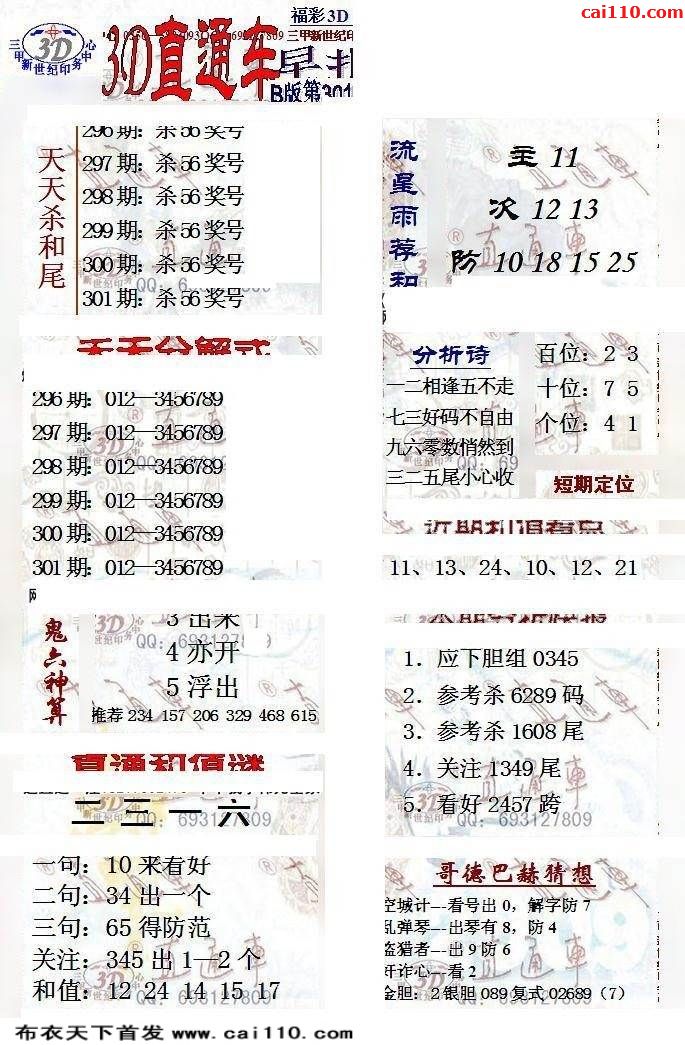 cai110.com
福彩3D
三甲新世纪印务中心
3D
3D直通车
早
B版第301
天天杀和尾
296期：杀56奖号
297期：杀56奖号
298期：杀56奖号
299期：杀56奖号
300期：杀56奖号
301期：杀56奖号
天天分解式
296期：012—3456789
297期：012—3456789
298期：012—3456789
299期：012—3456789
300期：012—3456789
301期：012—3456789
鬼六神算
3出来
4亦开
5浮出
推荐 234 157 206 329 468 615
直通和值谜
二三一六
QQ：693127809
一句：10来看好
二句：34出一个
三句：65得防范
关注：345出1—2个
和值：12 24 14 15 17
流星雨荐和
主 11
次 12 13
防 10 18 15 25
分析诗
一二相逢五不走
七三好码不自由
九六零数悄然到
三二五尾小心收
百位：2 3
十位：7 5
个位：4 1
短期定位
近期和值看点
11、13、24、10、12、21
1．应下胆组0345
2．参考杀6289码
3．参考杀1608尾
4．关注1349尾
5．看好2457跨
QQ：693127809
哥德巴赫猜想
空城计---看号出0，解字防7
乱弹琴---出琴有8，防4
盗猎者---出9防6
奸诈心---看2
金胆：2银胆089复式02689（7）
布衣天下首发 www.cai110.com